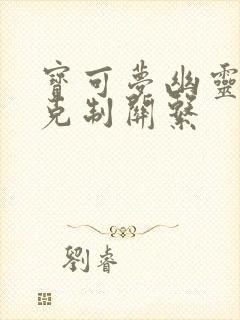 寶可夢幽靈
克制關繫
劉睿